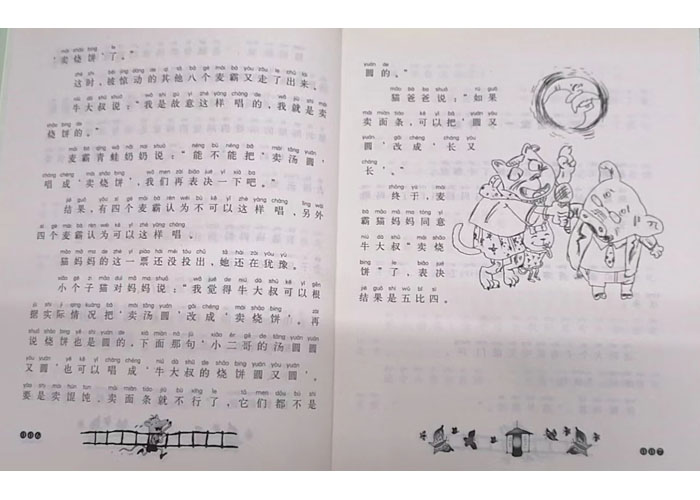 ‘卖烧饼’了。”
这时，被惊动的其他八个麦霸又走了出来。
牛大叔说：“我是故意这样唱的，我就是卖
烧饼的。”
麦霸青蛙奶奶说：“能不能把‘卖汤圆’
唱成‘卖烧饼’，我们再表决一下吧。”
结果，有四个麦霸认为不可以这样唱，另外
四个麦霸认为可以这样唱。
猫妈妈的这一票还没投出，她还在犹豫。
小个子猫对妈妈说：“我觉得牛大叔可以根
据实际情况把‘卖汤圆’改成‘卖烧饼’。再
说烧饼也是圆的，下面那句‘小二哥的汤圆圆
又圆’也可以唱成‘牛大叔的烧饼圆又圆’。
要是卖混饨、卖面条就不行了，它们都不是
006
圆的。”
猫爸爸说：“如果
卖面条，可以把‘圆又
圆’改成‘长又
长’。”
终于，麦
霸猫妈妈同意
牛大叔“卖烧
饼”了，表决
结果是五比四。
007